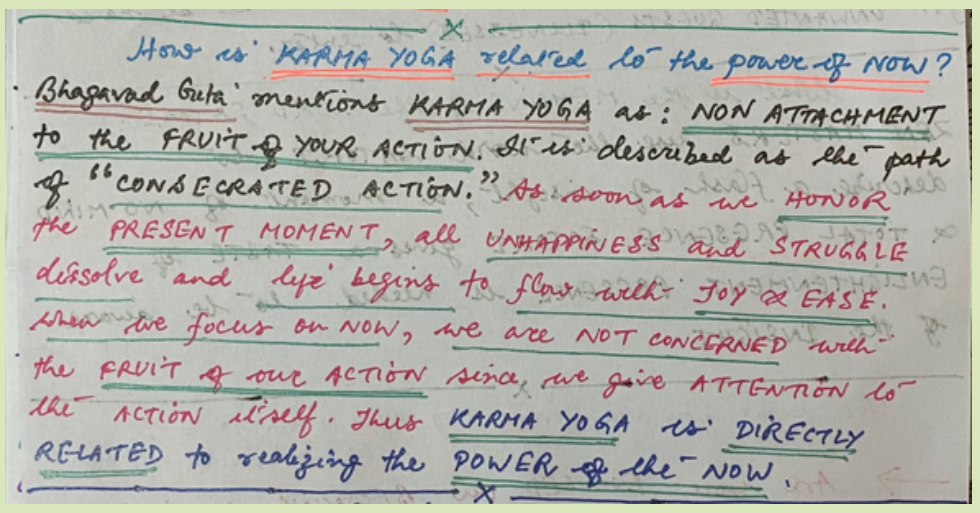 How is KARMA YOGA related to the power of NOW?
Bhagavad Guta mentions KARMA YOGA as: NON ATTACHMENT
to the FRUIT of YOUR ACTION. It is described as the path
of "CONSECRATED ACTION." As soon as we HONOR
the PRESENT MOMENT, all UNHAPPINESS and STRUGGLE
dissolve and life begins to flow with JOY & EASE.
When we focus on NOW, we are NOT CONCERNED with
the FRUIT of our ACTION since we give ATTENTION to
the ACTION itself. Thus KARMA YOGA is DIRECTLY
RELATED to realizing the POWER of the NOW.